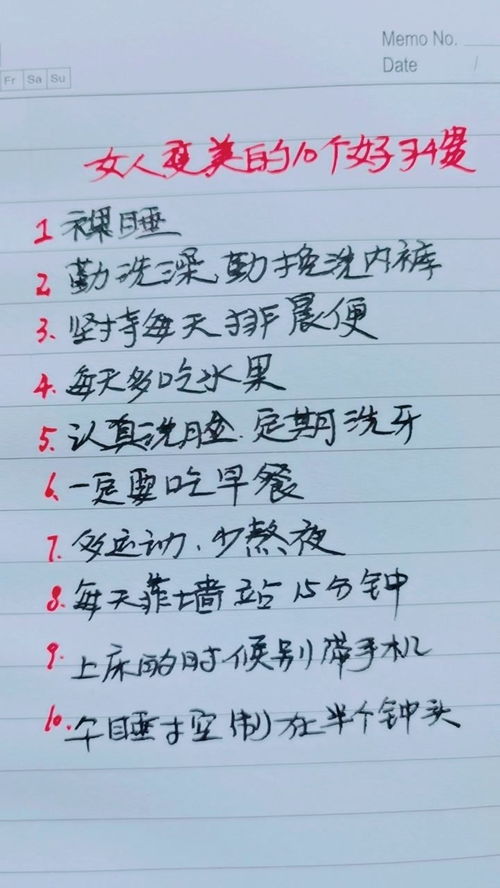 Memo No.
Date /
Fr Sa Su
女人变美的10个好习惯
1 裸睡
2. 勤洗澡,勤换洗内裤
3. 坚持每天排晨便
4. 每天多吃水果
5. 认真洗脸.定期洗牙
6. 一定要吃早餐
7. 多运动、少熬夜
8. 每天靠墙站15分钟
9. 上床的时候别带手机
10. 午睡控制在半个钟头